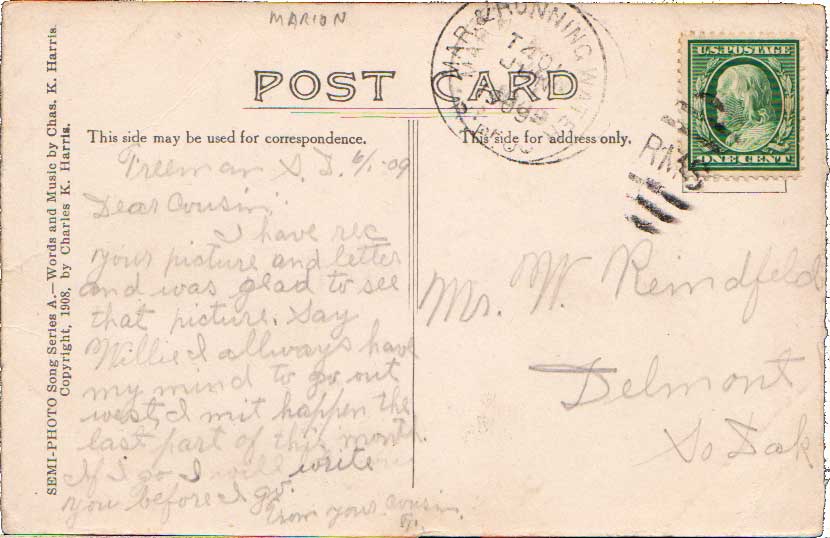 MARION
POST CARD
MAR. & RUNNING WATER
U.S. POSTAGE
ONE CENT
RMS
This side may be used for correspondence.
This side for address only.
SEMI-PHOTO Song Series A.—Words and Music by Chas. K. Harris.
Copyright, 1908, by Charles K. Harris.
Freeman S. D. 6/1-09
Dear Cousin:
I have rec
your picture and letter
and was glad to see
that picture. Say
Willie I allways have
my mind to go out
west, I mit happen the
last part of this month
If I go I will write
you before I go.
From your cousin
Mr. W. Reindfeld
Delmont
So Dak